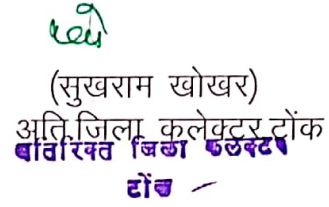 (सुखराम खोखर)
अति.जिला कलेक्टर,टोंक
अतिरिक्त जिला कलेक्टर
टोंक